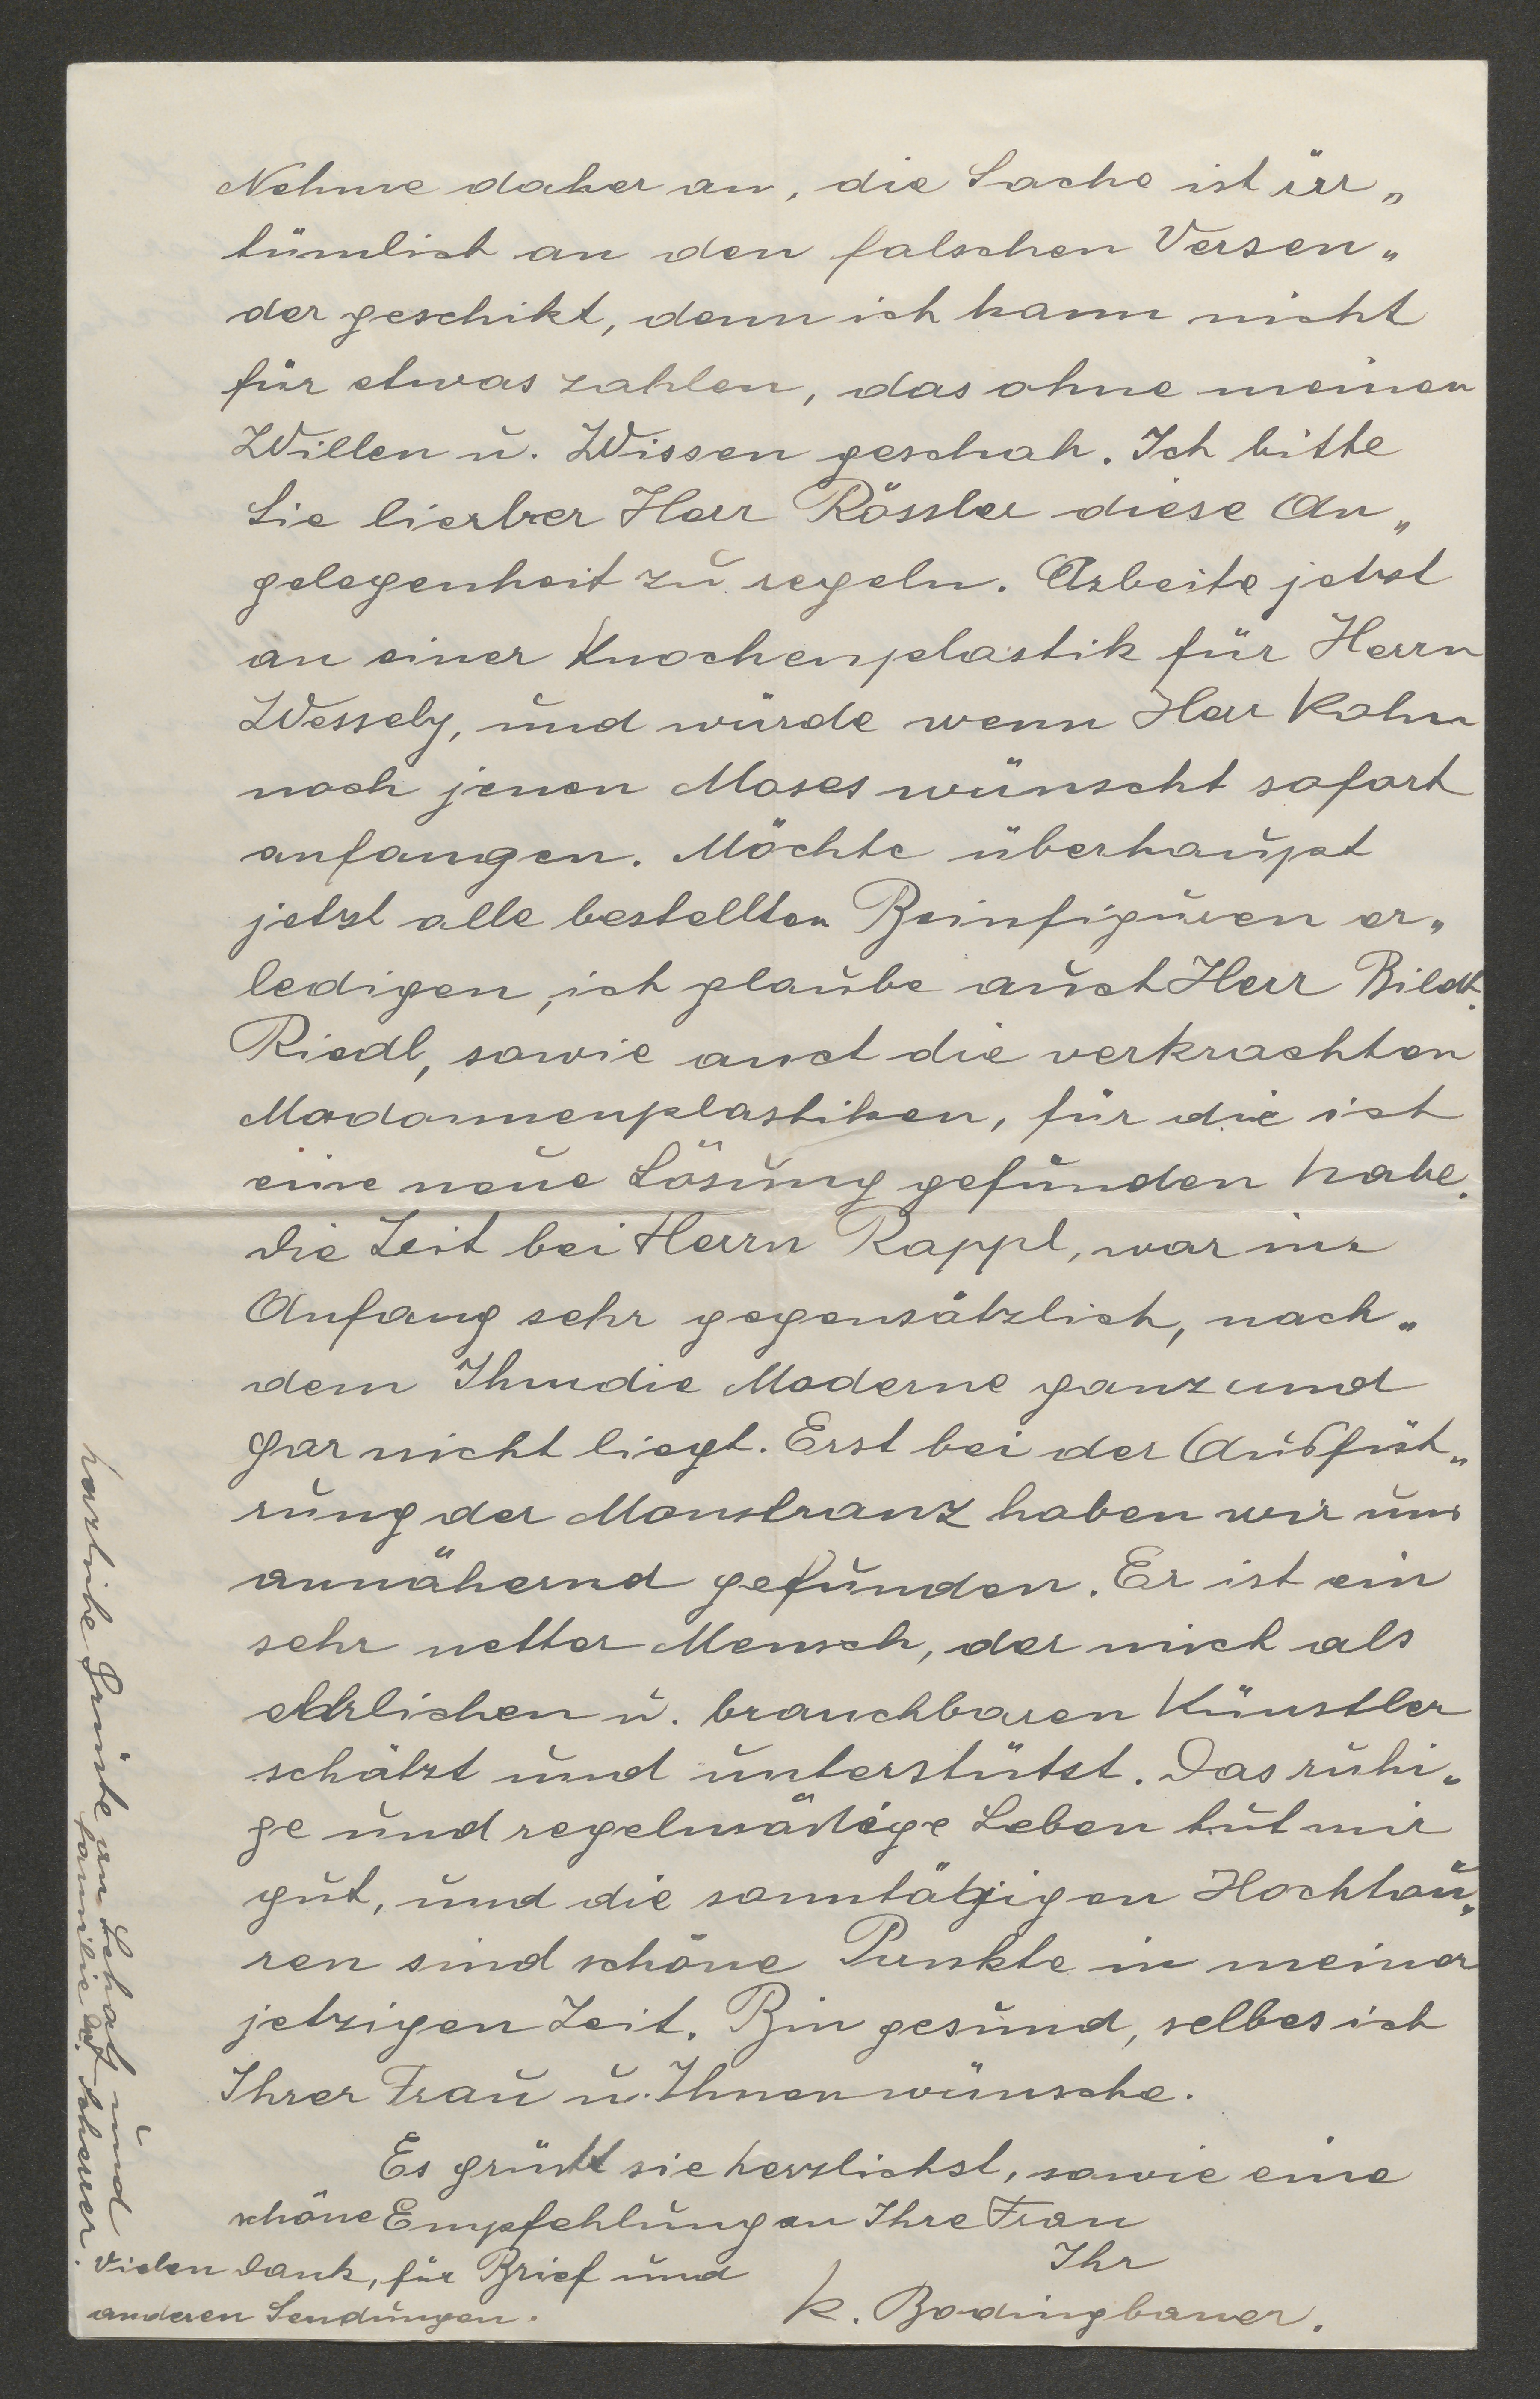 Nehme daher an, die Sache ist irr„
tümlich an den falschen Versen„
der geschikt, denn ich kann nicht
für etwas zahlen, das ohne meinen
Willen u. Wissen geschah. Ich bitte
Sie lierber Herr Rössler diese An„
gelegenheit zu regeln. Arbeite jetzt
an einer Knochenplastik für Herrn
Wessely, und würde wenn Herr Kohn
noch jenen Moses wünscht sofort
anfangen. Möchte überhaupt
jetzt alle bestellten Beinfiguren er„
ledigen, ich glaube auch Herr Bildh.
Riedl, sowie auch die verkrachten
Madonnenplastiken, für die ich
eine neue Lösung gefunden habe.
Die Zeit bei Herrn Rappl, war im
Anfang sehr gegensätzlich, nach„
dem Ihm die Moderne ganz und
gar nicht liegt. Erst bei der Ausfüh„
rung der Monstranz haben wir uns
annähernd gefunden. Er ist ein
sehr netter Mensch, der mich als
ehrlichen u. brauchbaren Künstler
schätzt und unterstützt. Das ruhi„
ge und regelmäßige Leben tut mir
gut, und die sonntägigen Hochtou„
ren sind schöne Punkte in meiner
jetzigen Zeit. Bin gesund, selbes ich
Ihrer Frau u. Ihnen wünsche.
Es grüßt sie herzlichst, sowie eine
schöne Empfehlung an Ihre Frau
Ihr
K. Bodingbauer.
Vielen Dank, für Brief und
anderen Sendungen.
herzliche Grüße an Schatz und
Familie Scheuer.